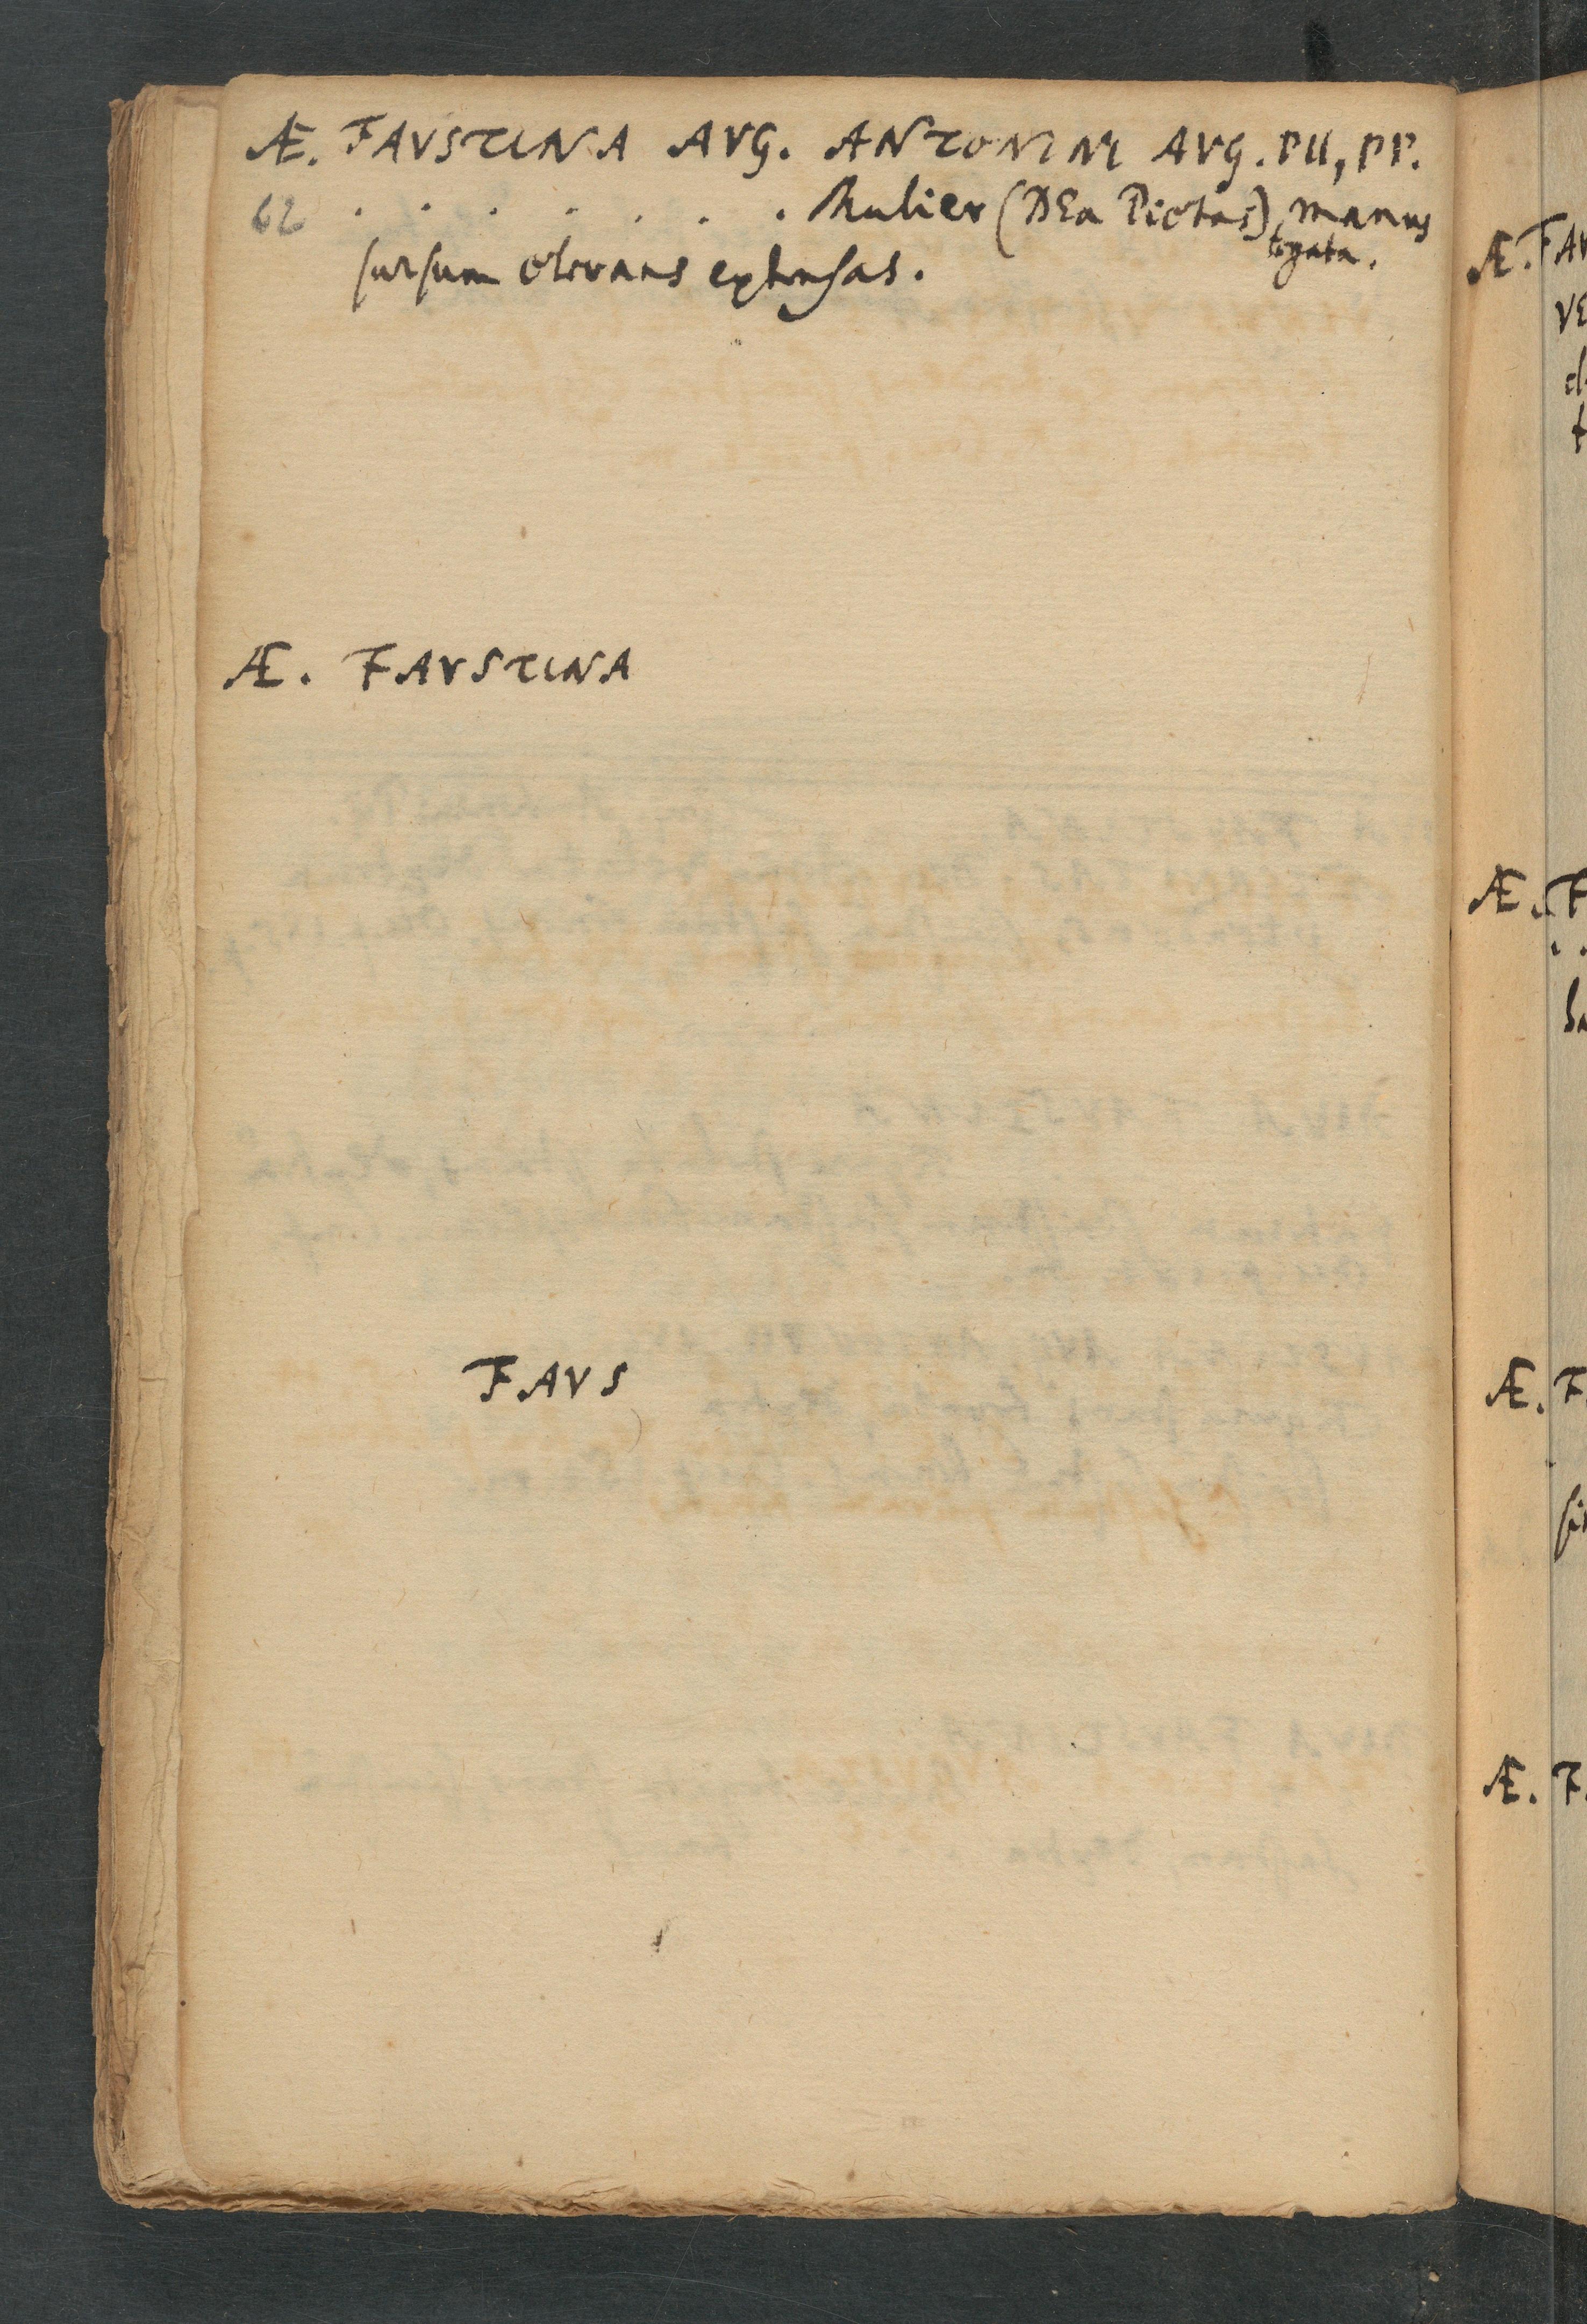 Æ. FAVSTINA AVG. ANTONINI AVG. PII, PP.
62 . . . . . . . Mulier (DEa Pietas) manus
togata.
sursum elevans extensas.
Æ. FAVSTINA
FAVS
Æ. FAV
VE
Æ. F
Æ. F.
Æ. F.